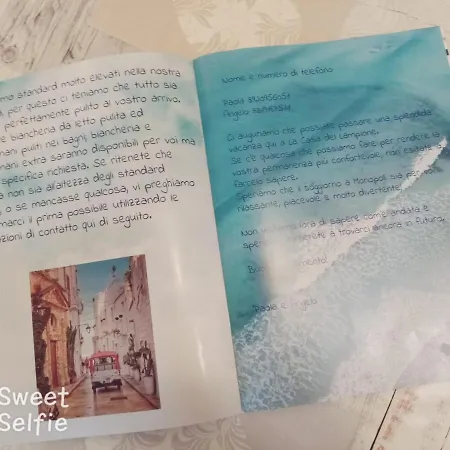 mo standard molto elevati nella nostra
per questo ci teniamo che tutto sia
perfettamente pulito al vostro arrivo.
e biancheria da letto pulita ed
mani puliti nei bagni; biancheria e
mani extra saranno disponibili per voi ma
specifica richiesta. Se ritenete che
a non sia all'altezza degli standard
o se mancasse qualcosa, vi preghiamo
marci il prima possibile utilizzando le
zioni di contatto qui di seguito.
Nome e numero di telefono
Paola
Angelo
Ci auguriamo che possiate passare una splendida
vacanza qui a La Casa del Lampione.
Se c'è qualcosa che possiamo fare per rendere la
vostra permanenza più confortevole, non esitate a
farcelo sapere.
Speriamo che il soggiorno a Monopoli sia per voi
rilassante, piacevole e molto divertente.
Non vediamo l'ora di sapere come andata e
speriamo verrete a trovarci ancora in futuro.
Paola e Angelo
Sweet
Selfie